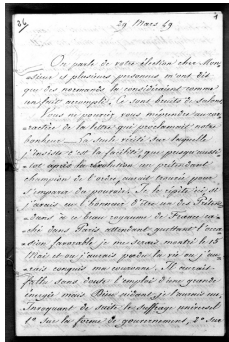 29 Mars 49
On parle de votre élection chez Mon
sieur et plusieurs personnes m'ont dit
que des normands la considéraient comme
un fait accompli. Ce sont bruits de salons
Vous ne pouvez vous méprendre au ca
ractère de la lettre qui proclamait notre
bonheur. La seule vérité sur laquelle
j'insiste c'est la facilité que presqu'aussi
tôt après la Révolution un prétendant
champion de l'ordre, aurait trouvé pour
s'emparer du pouvoir. Je le répète ici, si
j'avais eu l'honneur d'être un des Princes
dans ce beau royaume de France ca
ché dans Paris attendant guettant l'occa
sion favorable je me serais montré le 15
Mai et ou j'aurais perdu la vie ou j'au
rais conquis ma couronne. Il aurait
fallu sans doute l'emploi d'une grande
énergie mais Dieu aidant, je l'aurais eue
Invoquant de suite le suffrage universel
1° sur la forme de gouvernement, 2° sur